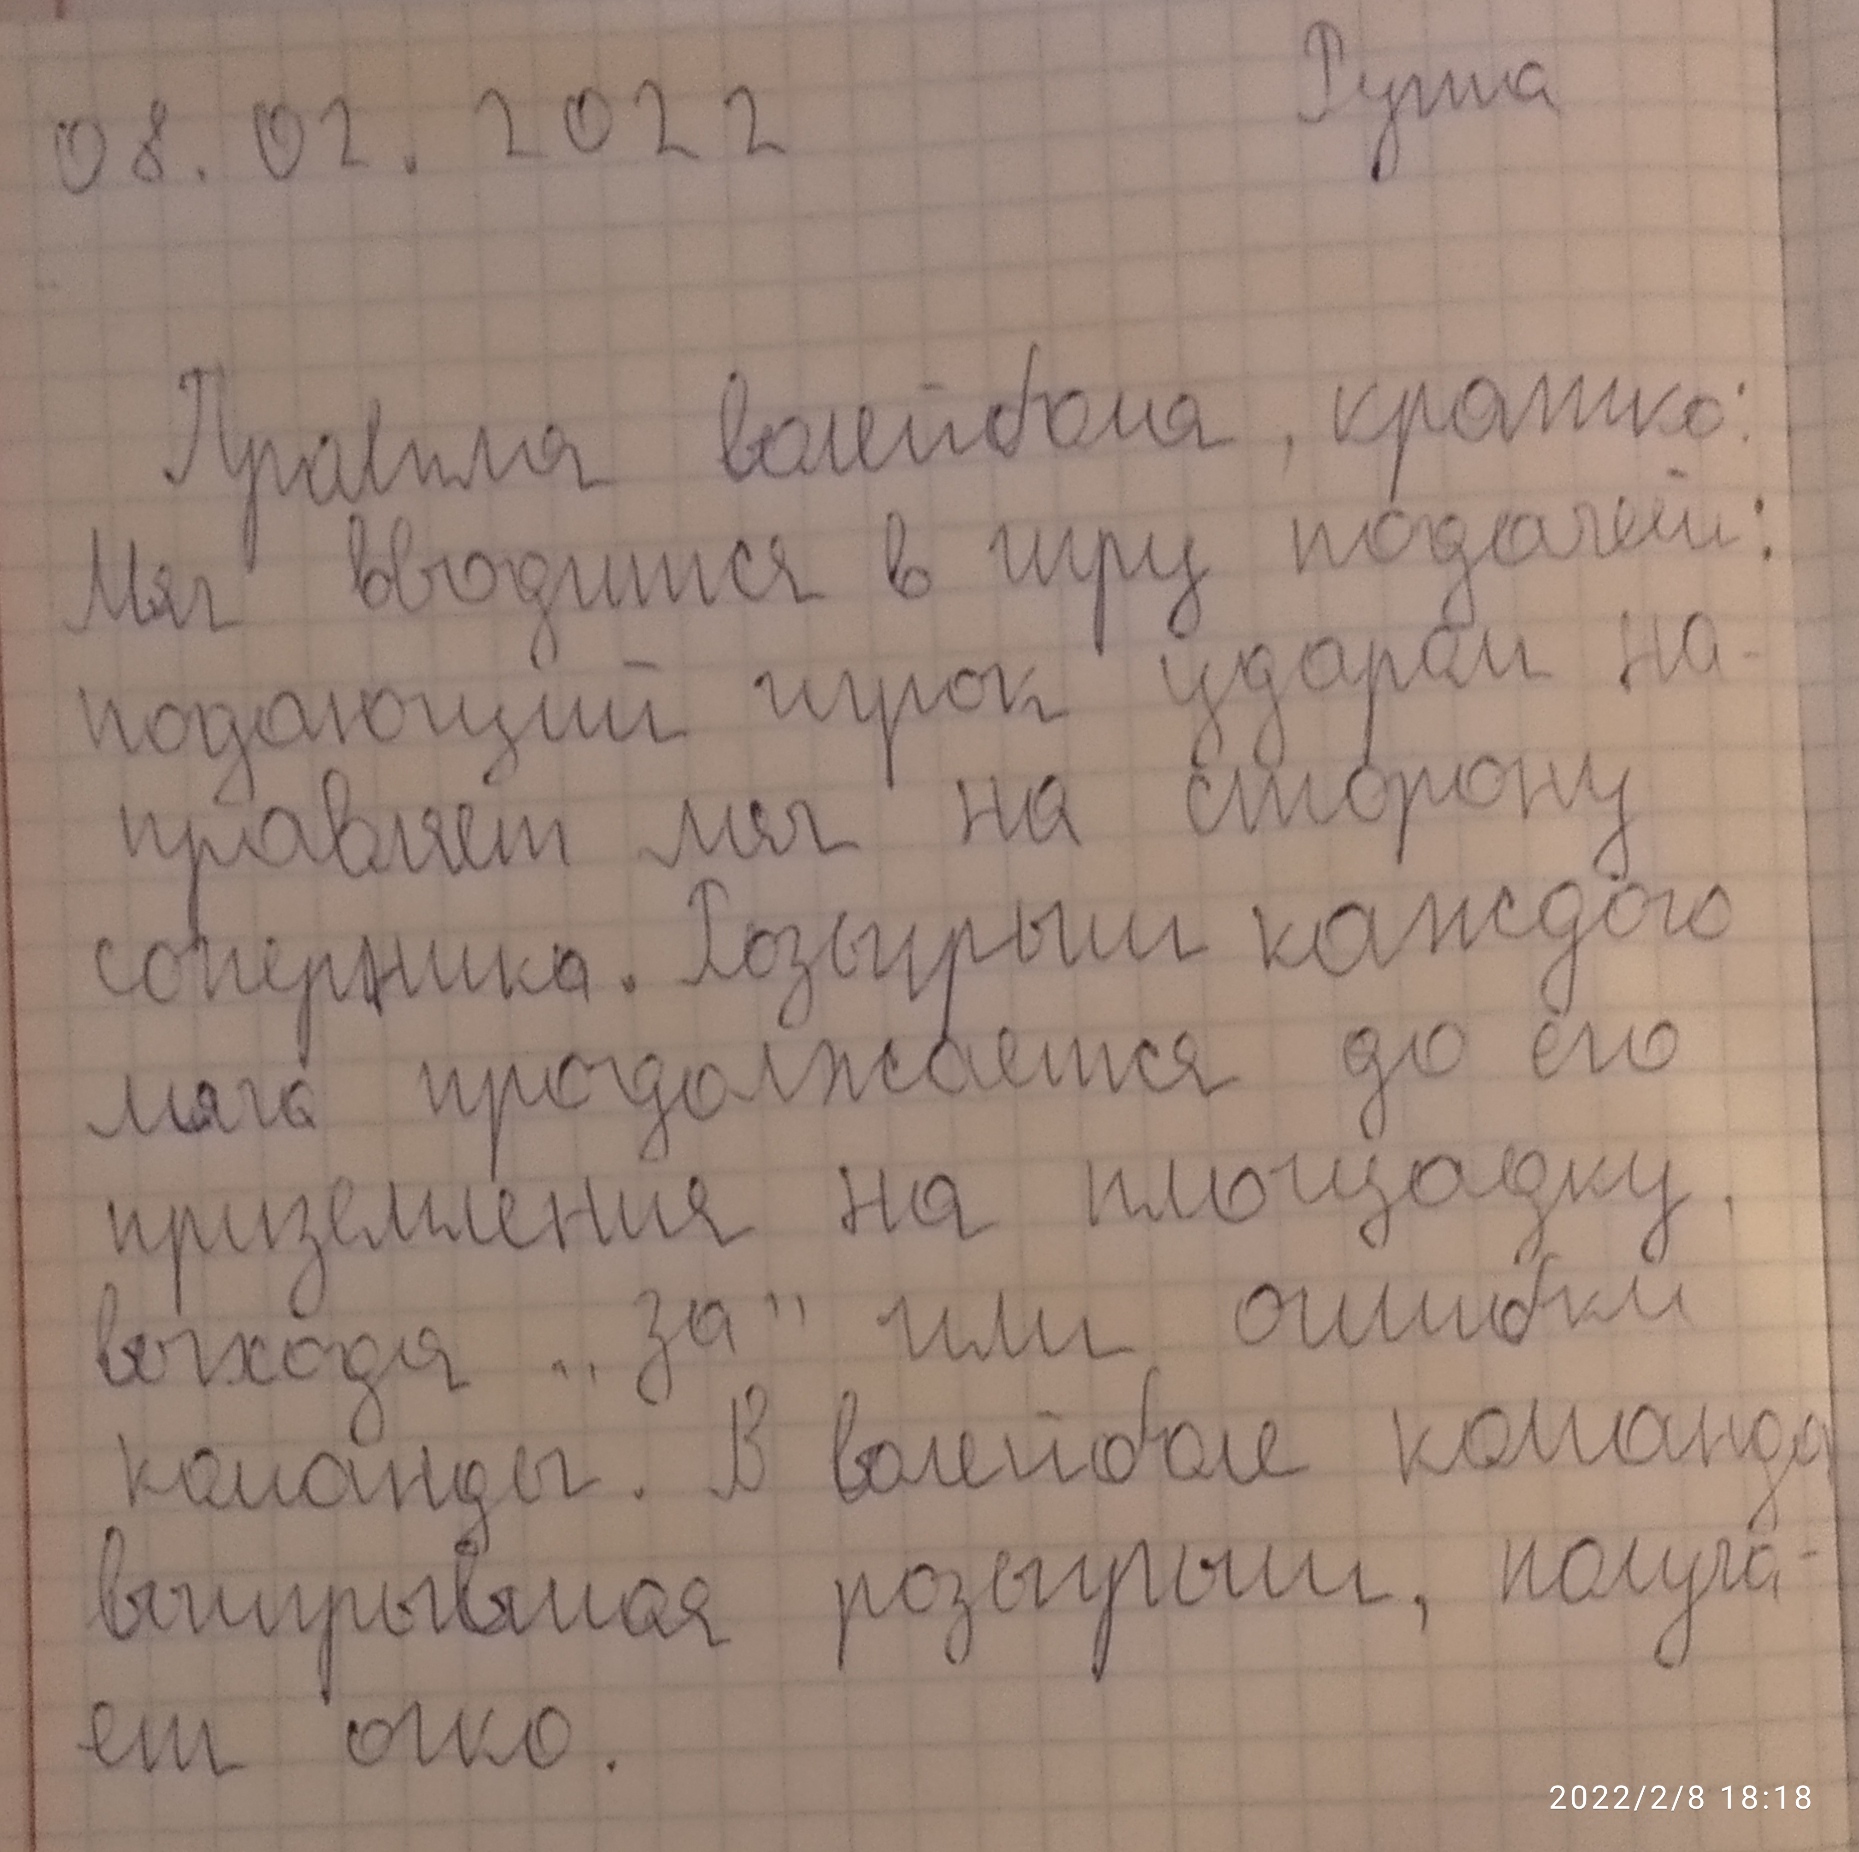 08.02.2022 Рута
Правила волейбола, кратко:
Мяч вводится в игру подачей:
подающий игрок ударом на-
правляет мяч на сторону
соперника. Розыгрыш каждого
мяча продолжается до его
приземления на площадку,
выхода „за" или ошибки
команды. В волейболе команда
выигрывшая розыгрыш, получа-
ет очко.
2022/2/8 18:18